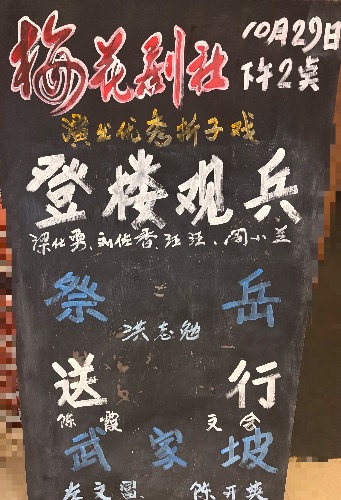 梅花剧社
10月29日
下午2点
演出优秀折子戏
登楼观兵
梁化勇、刘俊香、汪汪、周小兰
祭岳
洪志勉
送行
陈霞 文会
武家坡
陈开